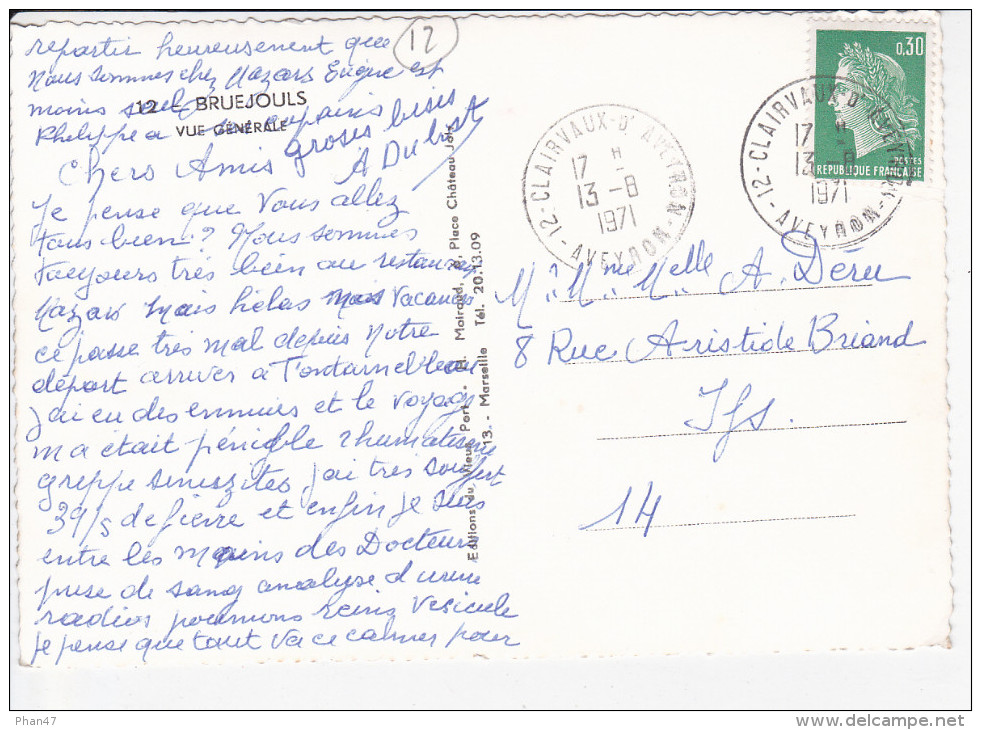 repartir heureusement que
Nous sommes chez Mazars Erique est
moins seul
Philippe a des copains
groses bises
A Dubost
12
12 - BRUEJOULS
VUE GÉNÉRALE
Chers Amis
Je pense que Vous allez
Tous bien? Nous sommes
Toujours très bien au restaurant
Mazars Mais hélas Mais Vacances
ce passe très mal depuis Notre
départ arriver à Fontainebleau
j'ai eu des ennuies et le voyage
m'a était pénible rhumatisme
greppe sinuszites j'ai très soufert
39/5 de fièvre et enfin je suis
entre les mains des Docteurs
prise de sang analyse d'urine
radios poumons reins vésicule
je pense que tout va ce calmer pour
Editions du Vieux Port - M. Mairaud, Place Château Joly
13. - Marseille Tél. 20.13.09
12 - CLAIRVAUX-D'AVEYRON - AVEYRON
17 H
13 - 8
1971
12 - CLAIRVAUX-D'AVEYRON - AVEYRON
17 H
13 - 8
1971
0,30
POSTES
REPUBLIQUE FRANÇAISE
M. Mme Melle A. Déru
8 Rue Aristide Briand
Ifs.
14
Phan47
delcampe.net